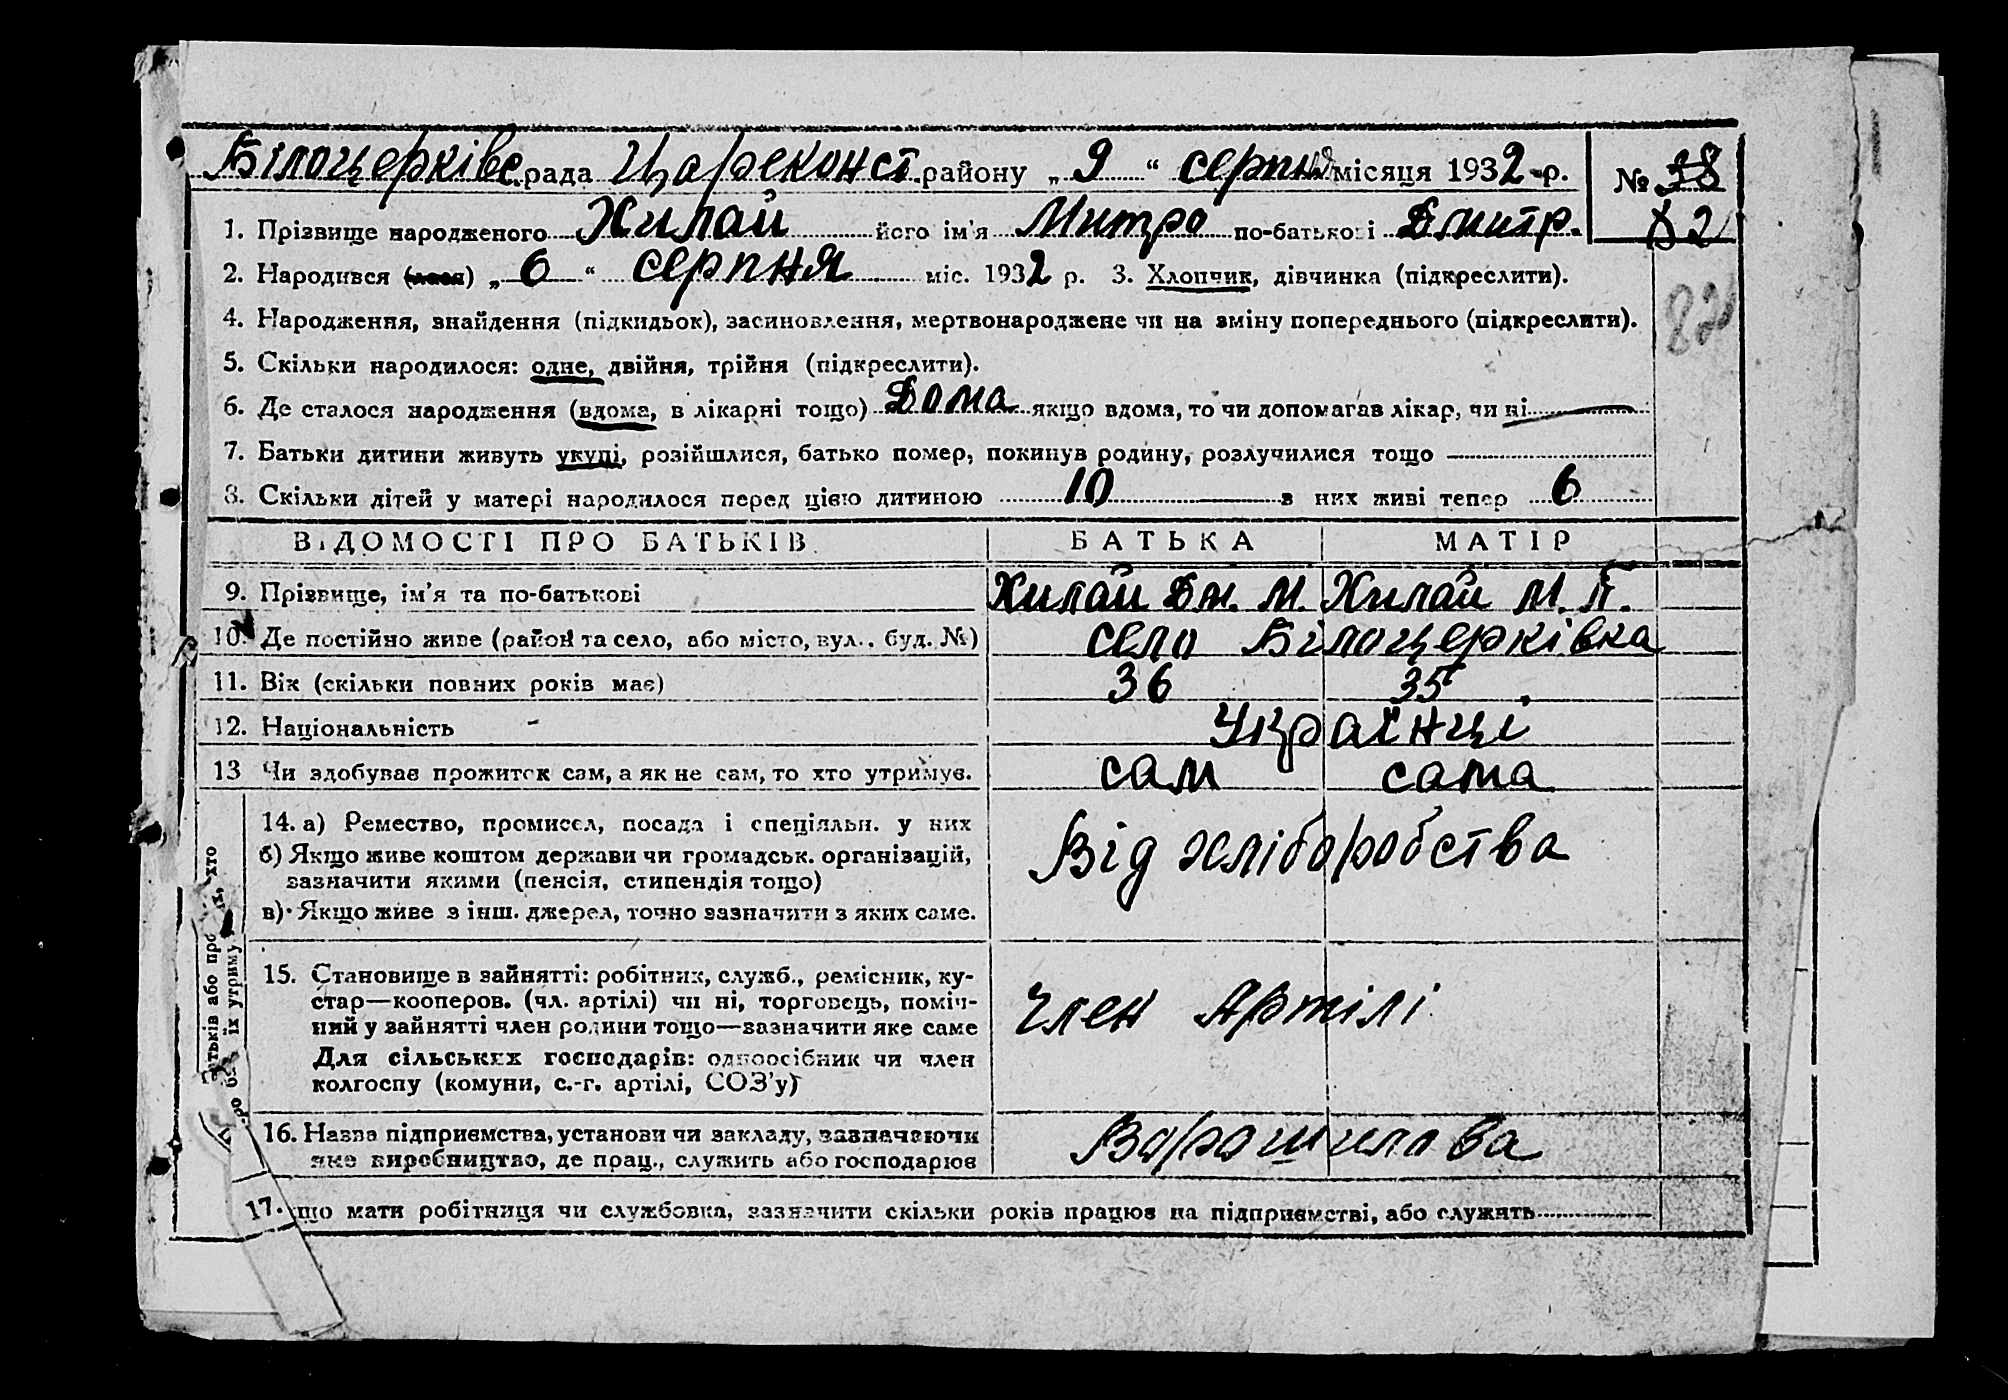 Білоцерківс. рада Цареконст. району „ 9 “ серпня місяця 1932 р. № 38
82
1. Прізвище народженого Хилай його ім'я Митро по-батькові Дмитр.
2. Народився (лася) „ 6 “ серпня міс. 1932 р. 3. Хлопчик, дівчинка (підкреслити).
82
4. Народження, знайдення (підкидьок), засиновлення, мертвонароджене чи на зміну попереднього (підкреслити).
5. Скільки народилося: одне, двійня, трійня (підкреслити).
6. Де сталося народження (вдома, в лікарні тощо) Дома якщо вдома, то чи допомагав лікар, чи ні
7. Батьки дитини живуть укупі, розійшлися, батько помер, покинув родину, розлучилися тощо
8. Скільки дітей у матері народилося перед цією дитиною 10 з них живі тепер 6
ВІДОМОСТІ ПРО БАТЬКІВ БАТЬКА МАТІР
9. Прізвище, ім'я та по-батькові Хилай Дм. М. Хилай М. П.
10. Де постійно живе (район та село, або місто, вул., буд. №) село Білоцерківка
11. Вік (скільки повних років має) 36 35
12. Національність Українці
13 Чи здобуває прожиток сам, а як не сам, то хто утримує. сам сама
14. а) Ремество, промисел, посада і спеціяльн. у них
б) Якщо живе коштом держави чи громадськ. організацій,
зазначити якими (пенсія, стипендія тощо)
Від хліборобства
в) Якщо живе з інш. джерел, точно зазначити з яких саме.
15. Становище в зайнятті: робітник, служб., ремісник, ку-
стар—кооперов. (чл. артілі) чи ні, торговець, поміч-
ний у зайнятті член родини тощо—зазначити яке саме
Член Артілі
Для сільських господарів: одноосібник чи член
колгоспу (комуни, с.-г. артілі, СОЗ'у)
16. Назва підприємства, установи чи закладу, зазначаючи
яке виробництво, де прац., служить або господарює
Ворошилова
17. що мати робітниця чи службовка, зазначити скільки років працює на підприємстві, або служить